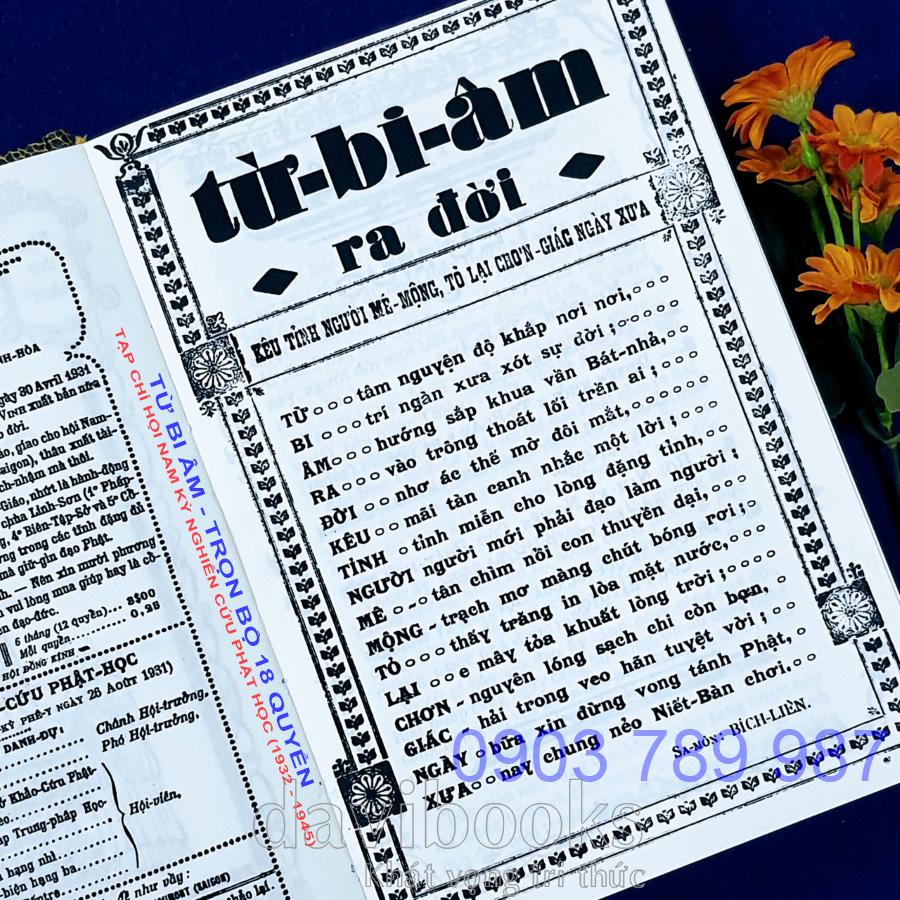 từ-bi-âm
ra đời
KÊU TỈNH NGƯỜI MÊ-MỘNG, TỎ LẠI CHƠN-GIÁC NGÀY XƯA
TỪ tâm nguyện độ khắp nơi nơi,
BI trí ngàn xưa xót sự đời ;
ÂM hướng sắp khua vần Bát-nhả,
RA vào trông thoát lối trần ai ;
ĐỜI nhơ ác thế mờ đôi mắt,
KÊU mãi tàn canh nhắc một lời ;
TỈNH tỉnh miễn cho lòng đặng tỉnh,
NGƯỜI người mới phải đạo làm người ;
MÊ - tân chìm nồi con thuyền dại,
MỘNG - trạch mơ màng chút bóng rơi ;
TỎ thấy trăng in lòa mặt nước,
LẠI e mây tỏa khuất lòng trời ;
CHƠN - nguyên lóng sạch chi còn bợn,
GIÁC hải trong veo hán tuyệt vời ;
NGÀY bữa xin đừng vong tánh Phật,
XƯA nay chung nẻo Niết-Bàn chơi.
SA-MÔN : BÍCH-LIÊN.
TỪ BI ÂM - TRỌN BỘ 18 QUYỂN
TẠP CHÍ HỘI NAM KỲ NGHIÊN CỨU PHẬT HỌC (1932 - 1945)
NH-HÒA
gày 30 Avril 1931
VINH xuất bản nữa
o đời.
áo, giao cho hội Nam-
Saigon), thân xuất tài-
ch-nhậm mà thôi.
-Giáo, nhứt là hành-động
chùa Linh-Sơn (1º Pháp-
g, 4º Biên-Tập-Sở và 5º Cô-
ng trong các tỉnh đặng đủ
nà giữ-gìn đạo Phật.
h. — Nên xin mười phương
vui lòng mua giúp hay là cổ-
n đạo-đức.
6 tháng (12 quyển)... 2$00
Mỗi quyển... 0.25
HỘI ĐỒNG KÍNH
-CỨU PHẬT-HỌC
KỲ PHÊ-Y NGÀY 26 AOÛT 1931)
DANH-DỰ;
Chánh Hội-trưởng,
Phó Hội-trưởng,
& Khảo-Cứu Phật-
ập Trung-pháp Học-
Hội-viên,
hạng nhì
-biện hạng ba
như vầy :
0903 789 987
davibooks
Khát vọng tri thức